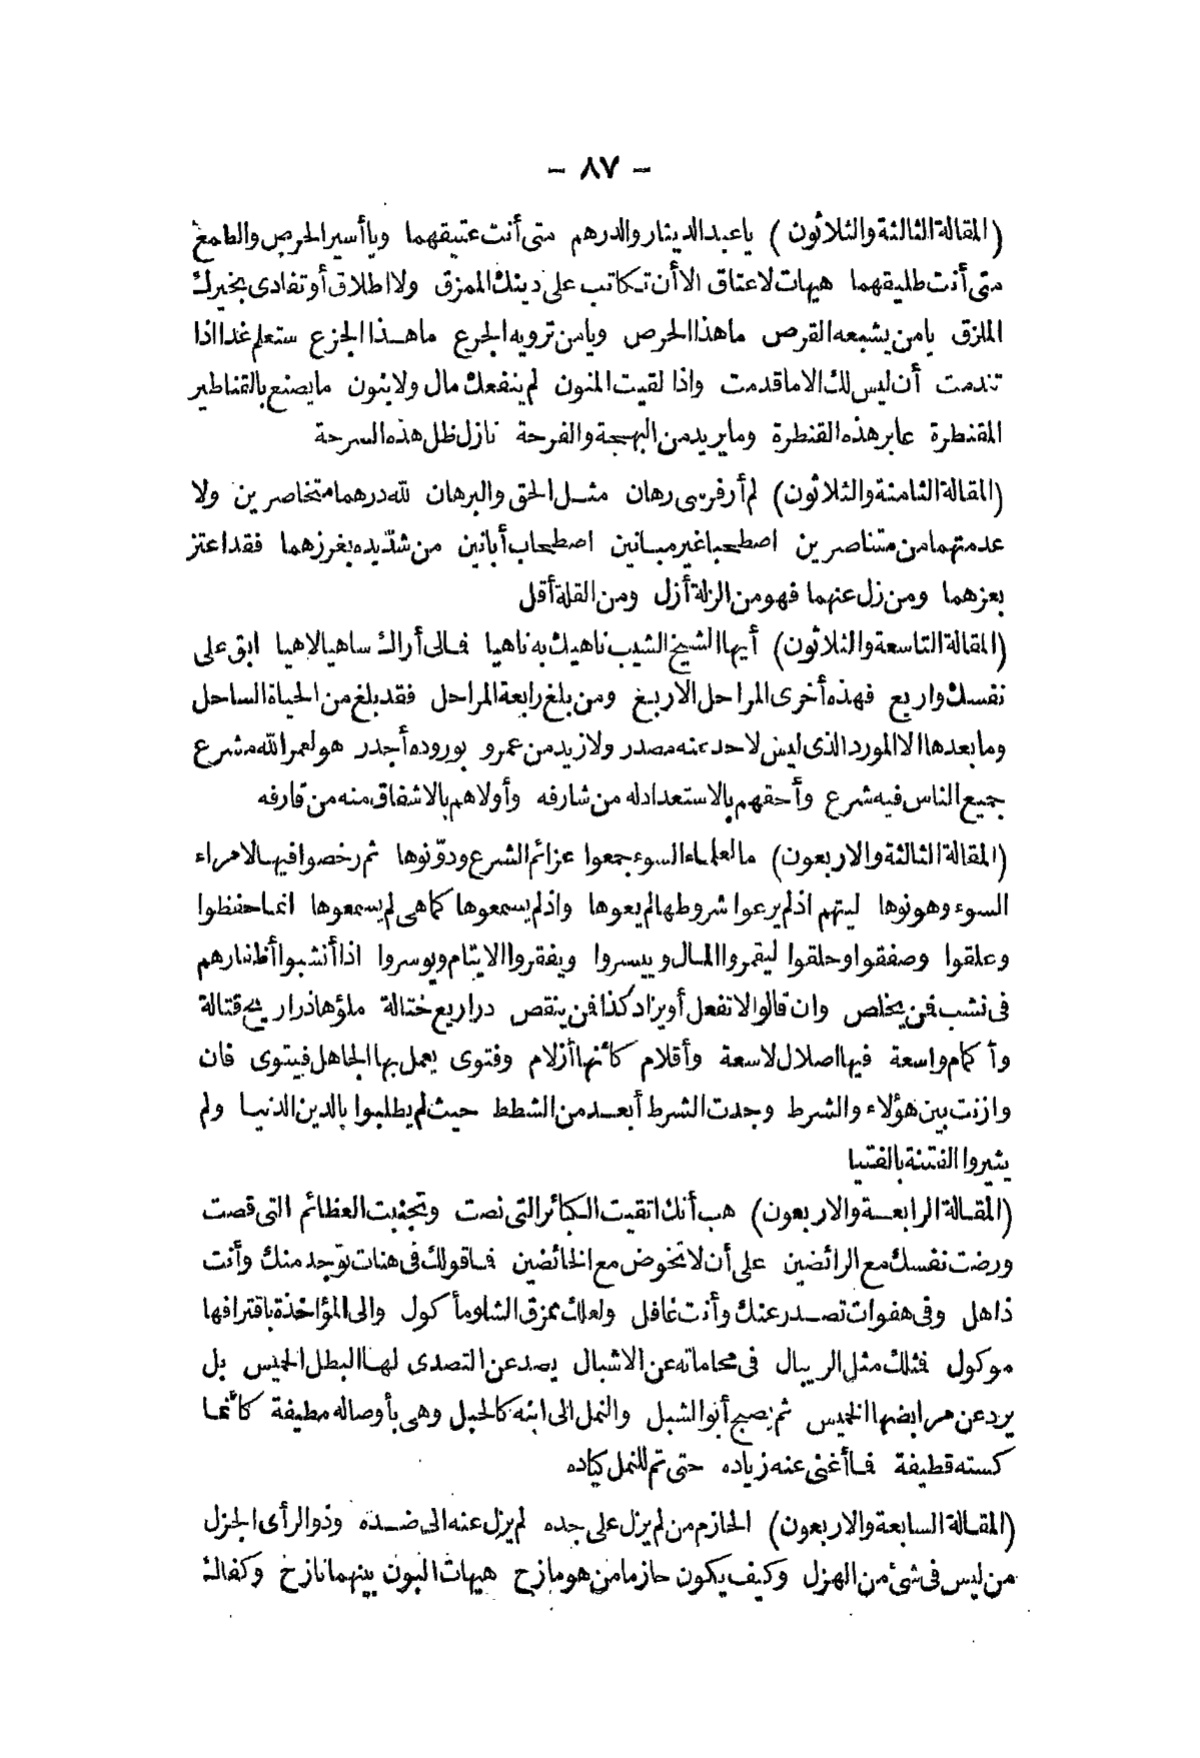 - ٨٧ -
(المقالة الثالثة والثلاثون) يا عبد الدينار والدرهم متى أنت عتيقهما ويا أسير الحرص والطمع
متى أنت طليقهما هيهات لا عتاق الا أن تكاتب على دينك الممزق ولا اطلاق أو تفادى بخيرك
الملزق يا من يشبعه القرص ما هذا الحرص ويا من ترويه الجرع ما هذا الجزع ستعلم غدا اذا
تندمت أن ليس لك الا ما قدمت واذا لقيت المنون لم ينفعك مال ولا بنون ما يصنع بالقناطير
المقنطرة عابر هذه القنطرة وما يريد من البهجة والفرحة نازل ظل هذه السرحة
(المقالة الثامنة والثلاثون) لم أر فرسى رهان مثل الحق والبرهان لله درهما متخاصرين ولا
عدمتهما من متناصرين اصطحبا غير مبانين اصطحاب أبانين من شد يده بغرزهما فقد اعتز
بعزهما ومن زل عنهما فهو من الزلة أزل ومن القلة أقل
(المقالة التاسعة والثلاثون) أيها الشيخ الشيب ناهيك به ناهيا فمالى أراك ساهيا لاهيا ابق على
نفسك واربع فهذه أخرى المراحل الاربع ومن بلغ رابعة المراحل فقد بلغ من الحياة الساحل
وما بعدها الا المورد الذى ليس لاحد عنه مصدر ولا زيد من عمرو بوروده أجدر هو لعمر الله مشرع
جميع الناس فيه شرع وأحقهم بالاستعداد له من شارفه وأولاهم بالاشفاق منه من قارفه
(المقالة الثالثة والاربعون) ما لعلماء السوء جمعوا عزائم الشرع ودوّنوها ثم رخصوا فيها لامراء
السوء وهونوها ليتهم اذ لم يرعوا شروطها لم يعوها واذ لم يسمعوها كما هى لم يسمعوها انما حفظوا
وعلقوا وصفقوا وحلقوا ليقمروا المال وييسروا ويفقروا الايتام ويوسروا اذا أنشبوا أظفارهم
فى نشب فمن يخلص وان قالوا لا نفعل أو يزاد كذا فمن ينقص دراريع ختالة ملؤها ذراريح قتالة
وأكمام واسعة فيها اصلال لاسعة وأقلام كأنها أزلام وفتوى يعمل بها الجاهل فيتوى فان
وازنت بين هؤلاء والشرط وجدت الشرط أبعد من الشطط حيث لم يطلبوا بالدين الدنيا ولم
يثيروا الفتنة بالفتيا
(المقالة الرابعة والاربعون) هب أنك اتقيت الكبائر التى نصت وتجنبت العظائم التى قصت
ورضت نفسك مع الرائضين على أن لا تخوض مع الخائضين فما قولك فى هنات توجد منك وأنت
ذاهل وفى هفوات تصدر عنك وأنت غافل ولعلك ممزق الشلو مأكول والى المؤاخذة باقترافها
موكول فمثلك مثل الريبال فى محاماته عن الاشبال يصد عن التصدى لها البطل الحميس بل
يرد عن مرابضها الخميس ثم يصبح أبو الشبل والنمل الى ابنه كالحبل وهى بأوصاله مطيفة كأنما
كسته قطيفة فما أغنى عنه زياده حتى تم للنمل كياده
(المقالة السابعة والاربعون) الحازم من لم يزل على جده لم يزل عنه الى ضده وذو الرأى الجزل
من ليس فى شئ من الهزل وكيف يكون حازما من هو مازح هيهات البون بينهما نازح وكفاك